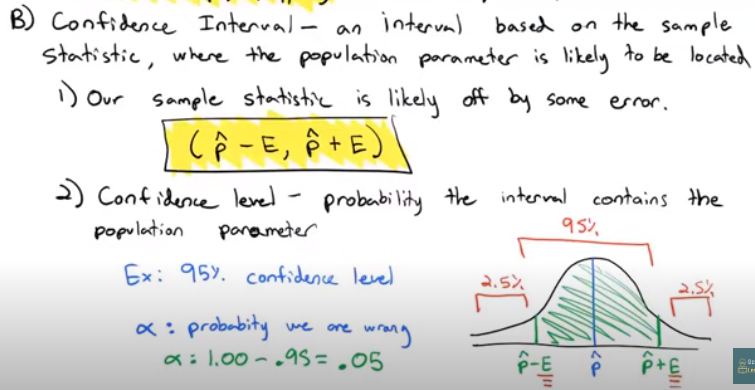 B) Confidence Interval - an interval based on the sample
statistic, where the population parameter is likely to be located
1) Our sample statistic is likely off by some error.
(p̂ - E, p̂ + E)
2) Confidence level - probability the interval contains the
population parameter
95%
Ex: 95% confidence level
2.5%
2.5%
α: probabity we are wrong
α: 1.00 - .95 = .05
p̂-E
p̂
p̂+E